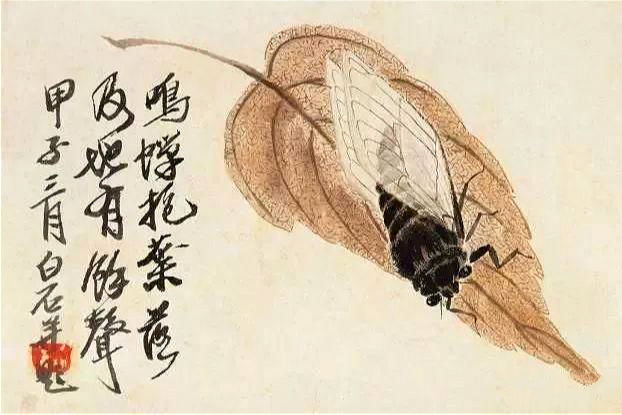 鳴蟬抱葉落
及地有餘聲
甲子三月白石題